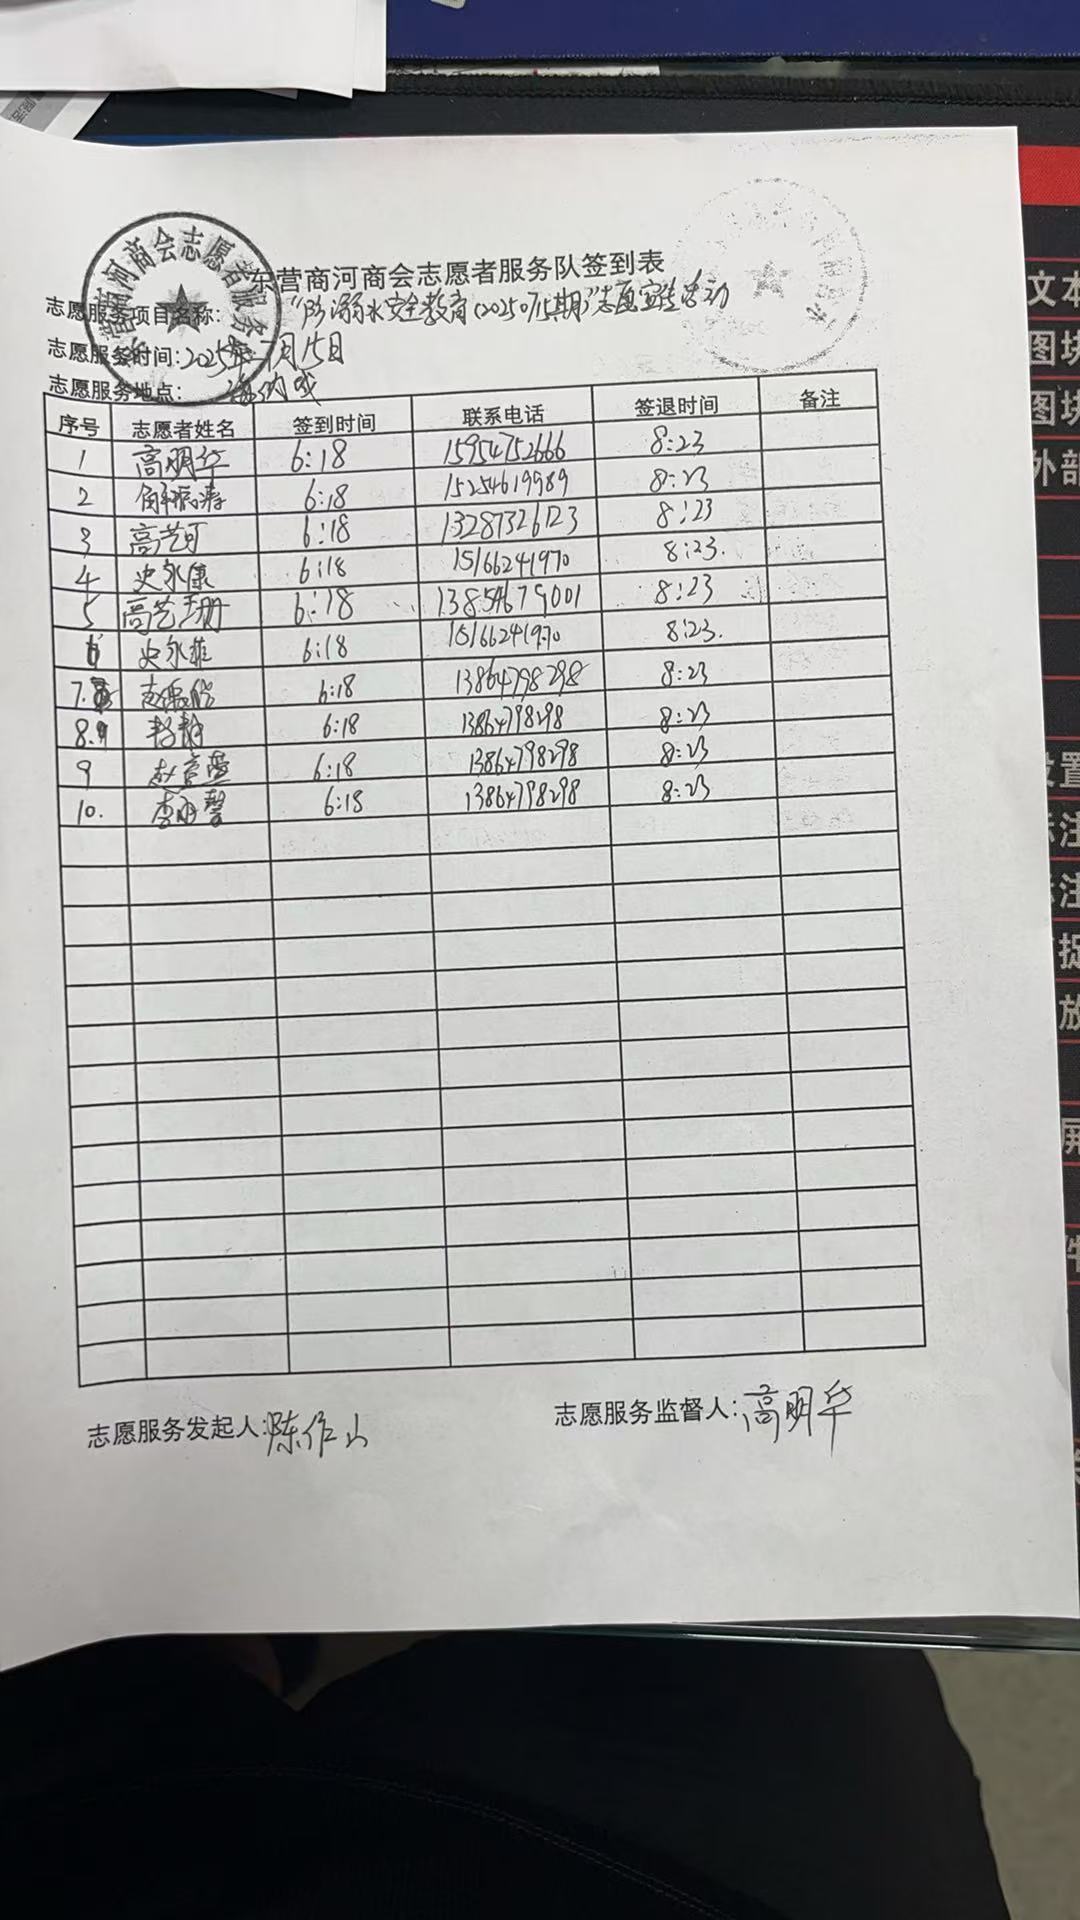 东营商河商会志愿者服务队签到表
志愿服务项目名称：“防溺水安全教育(20250715期)”志愿宣传活动
志愿服务时间：2025年7月15日
志愿服务地点：
序号 志愿者姓名 签到时间 联系电话 签退时间 备注
1 高明华 6:18 15954752666 8:23
2 6:18 15254619989 8:23
3 高艺可 6:18 13287326123 8:23
4 史永康 6:18 15166241970 8:23.
5 高艺珊 6:18 13854679001 8:23
6 史永菲 6:18 15166241970 8:23.
7. 6:18 13864798298 8:23
8. 6:18 13864798298 8:23
9 6:18 13864798298 8:23
10. 6:18 13864798298 8:23
志愿服务发起人：陈作山 志愿服务监督人：高明华
文本
图块
图块
外部
设置
标注
标注
捕捉
放
屏
件